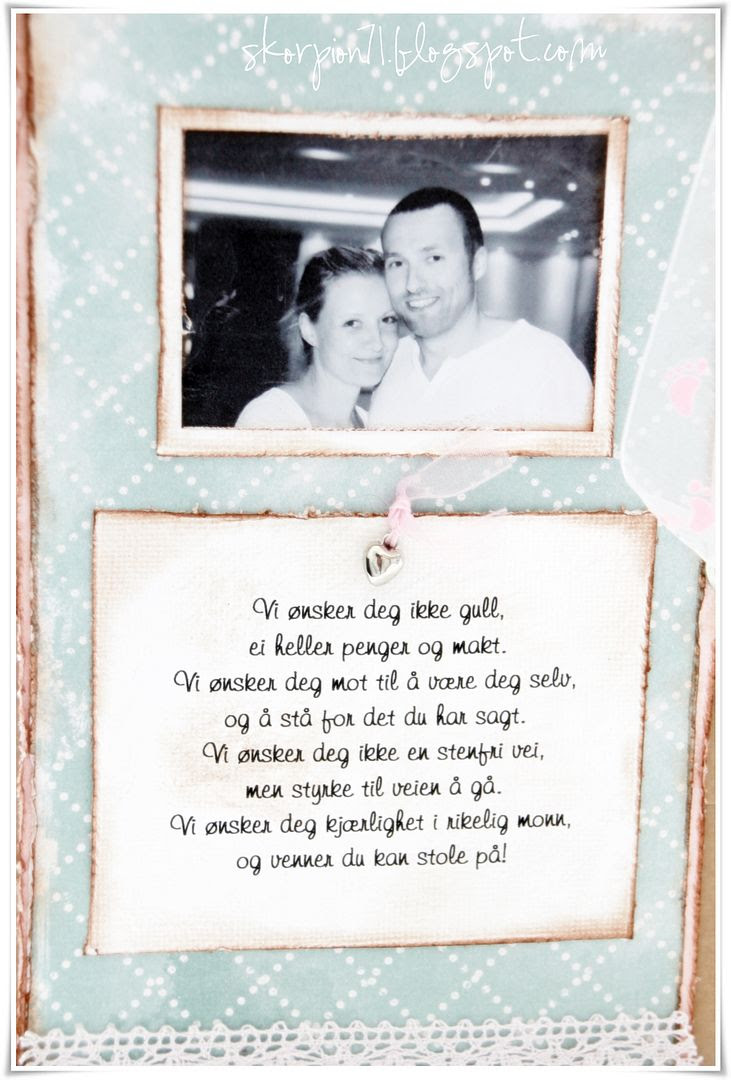 skorpion71.blogspot.com
Vi ønsker deg ikke gull,
ei heller penger og makt.
Vi ønsker deg mot til å være deg selv,
og å stå for det du har sagt.
Vi ønsker deg ikke en stenfri vei,
men styrke til veien å gå.
Vi ønsker deg kjærlighet i rikelig monn,
og venner du kan stole på!